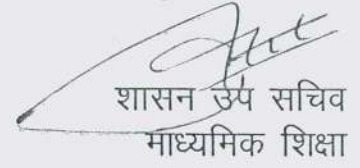 शासन उप सचिव
माध्यमिक शिक्षा